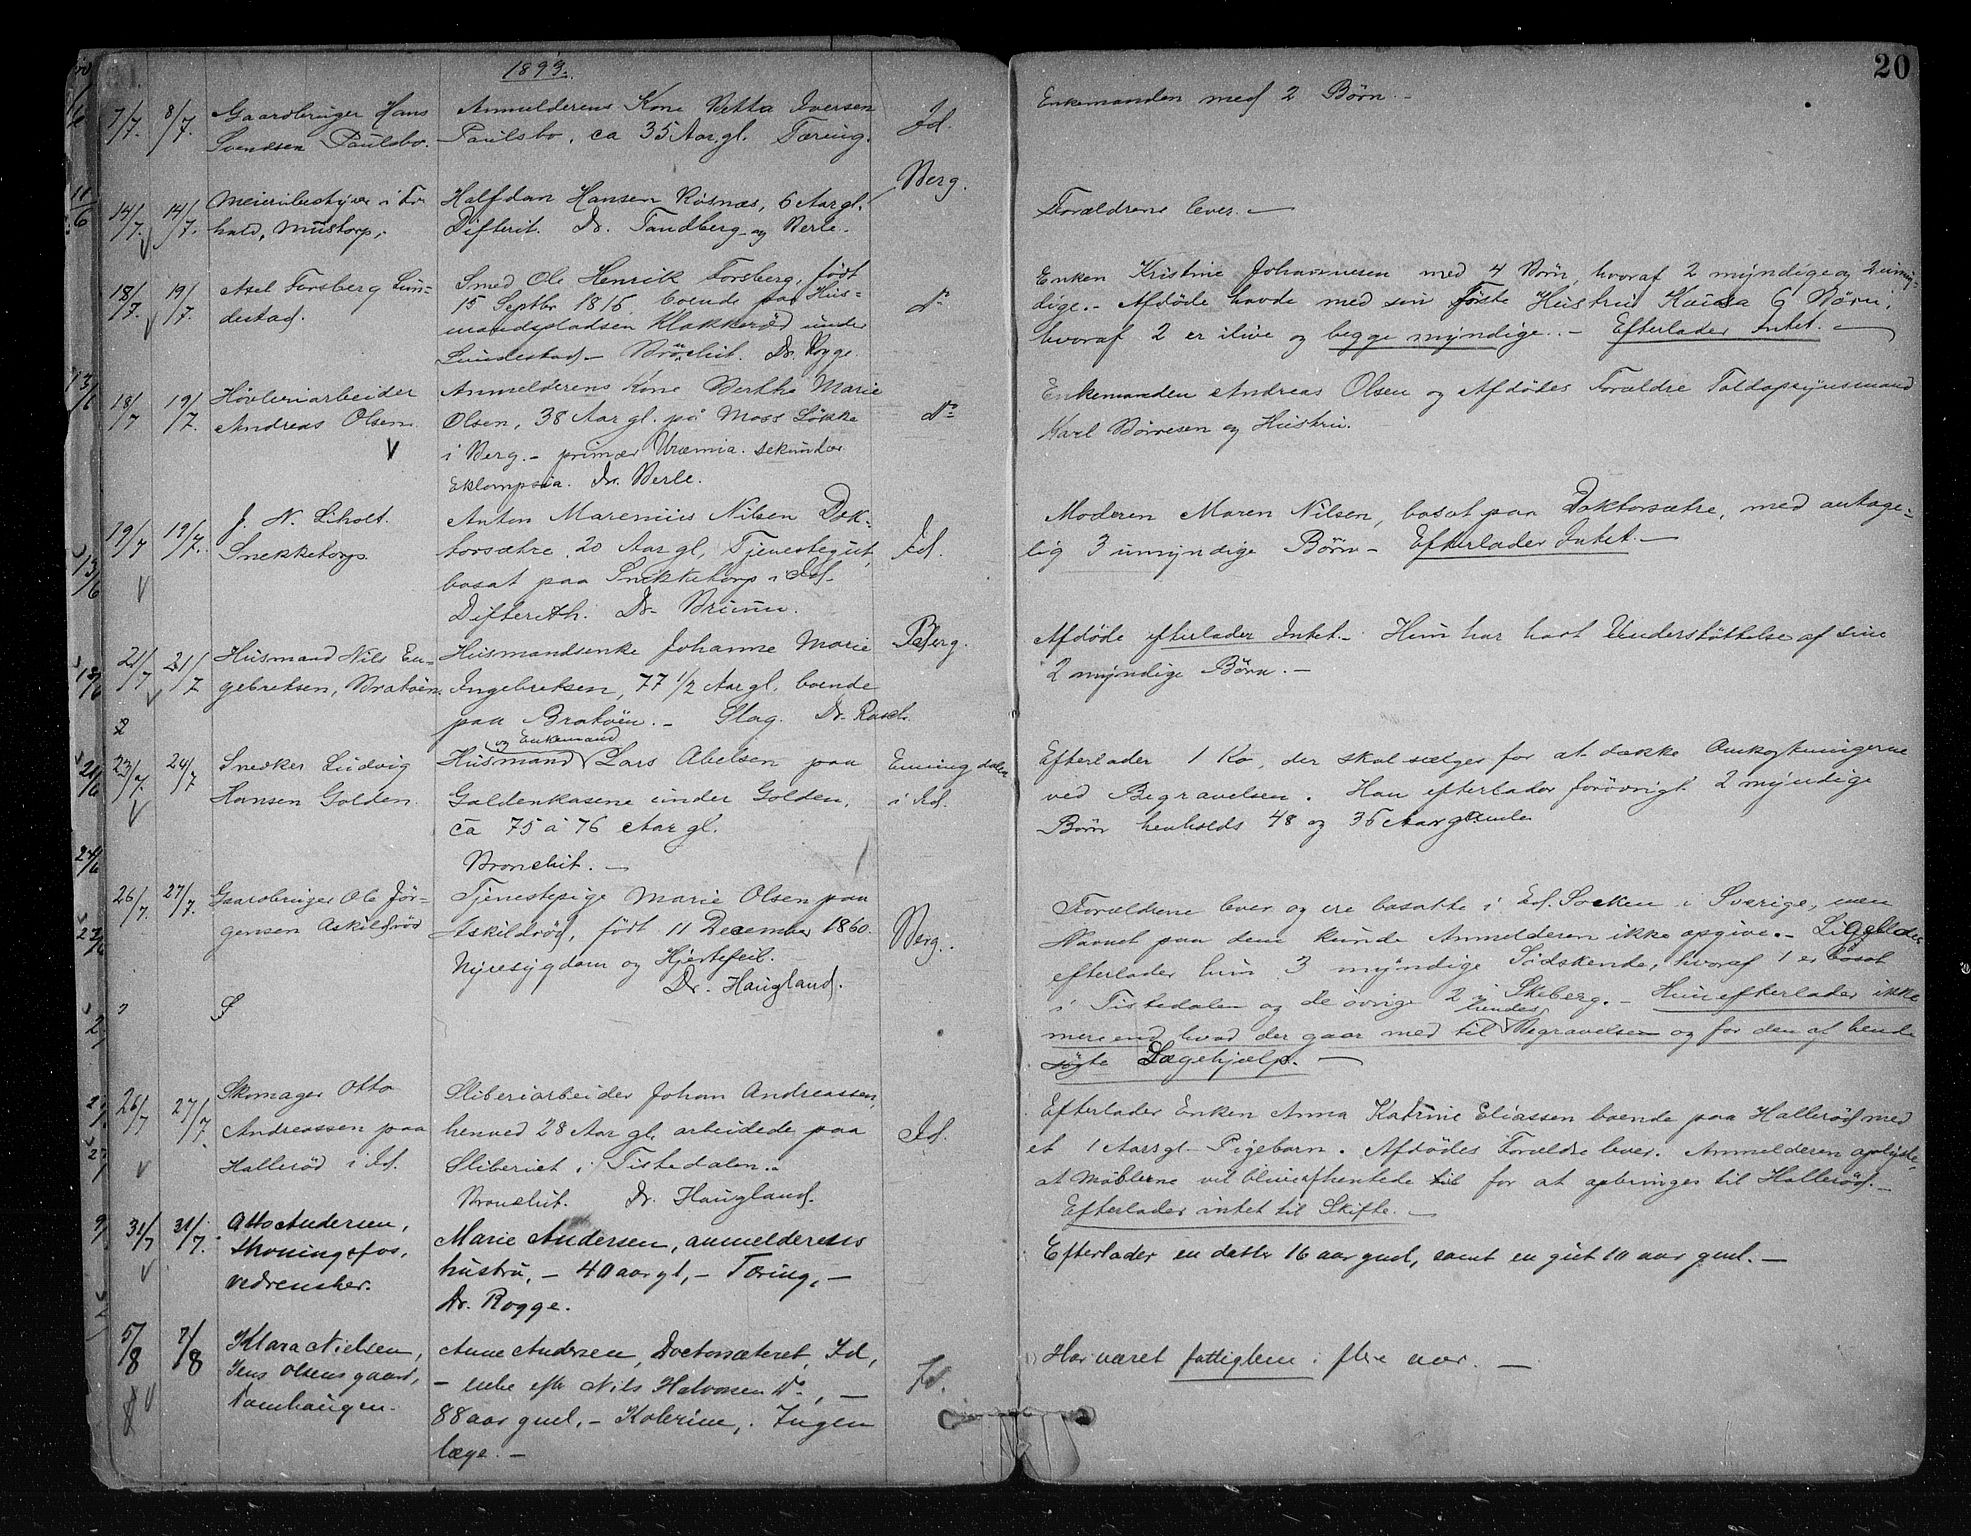 1893.
20
7/7. 8/7. Gaardbruger Hans
Svendsen Paulsbo.
Anmelderens Kone Betta Iversen
Paulsbo, ca 35 Aar gl. Tæring.
Id.
Enkemanden med 2 Børn. —
14/7. 14/7. Meieribestyrer i Fr.
hald, Mustorp.
Halfdan Hansen Røsnæs, 6 Aar gl.
Difterit. Dr. Tandberg og Berle.
Berg.
Forældrene lever. —
18/7. 19/7. Axel Forsberg Lun-
destad.
Smed Ole Henrik Forsberg, født
15 Septbr 1816, boende paa Hus-
mandspladsen Klakkerød under
Lundestad — Bronchit. Dr. Rogge.
do
Enken Kristine Johannesen med 4 Børn, hvoraf 2 myndige og 2 umyn-
dige. — Afdøde havde med sin første Hustru Kaisa 6 Børn,
hvoraf 2 er ilive og begge myndige. — Efterlader Intet. —
18/7 19/7. Høvleriarbeider
Andreas Olsen.
Anmelderens Kone Berthe Marie
Olsen, 38 Aar gl. på Moss Løkke
i Berg. — primær Uræmia. sekundær
Eklampsia. Dr. Berle.
do
Enkemanden Andreas Olsen og Afdødes Forældre Toldopsynsmand
Karl Børresen og Hustru.
19/7 19/7. J. N. Liholt.
Snekketorp.
Anton Marenius Nilsen Dok-
torsætre, 20 Aar gl, Tjenestegut,
bosat paa Snekketorp i Id.
Difterith. Dr. Bruun.
Id.
Moderen Maren Nilsen, bosat paa Doktorsætre, med antage-
lig 3 umyndige Børn — Efterlader Intet. —
21/7 21/7 Husmand Nils En-
gebretsen, Bratøen.
Husmandsenke Johanne Marie
Ingebretsen, 77 1/2 Aar gl. boende
paa Bratøen. — Slag. Dr. Rasch.
Berg.
Afdøde efterlader Intet. — Hun har havt Understøttelse af sine
2 myndige Børn. —
23/7. 24/7 Snedker Ludvig
Hansen Golden.
og Enkemand
Husmand Lars Abelsen paa
Goldenkasene under Golden,
ca 75 a 76 Aar gl.
Bronchit. —
Enningdalen
i Id.
Efterlader 1 Ko, der skal sælges for at dække Omkostningerne
ved Begravelsen. Han efterlader forøvrigt 2 myndige
Børn henholds 48 og 36 Aar gamle
26/7. 27/7. Gaardbruger Ole Jør-
gensen Askildrød
Tjenestepige Marie Olsen paa
Askildrød, født 11 December 1860.
Nyresygdom og Hjertefeil.
Dr. Haugland.
Berg.
Forældrene lever og ere bosatte i Socken i Sverige, men
Navnet paa dem kunde Anmelderen ikke opgive. — Ligeledes
efterlader hun 3 myndige Sødskende, hvoraf 1 er bosat
i Tistedalen og de øvrige 2 i Skeberg. — Hun efterlader ikke
mere end hvad der gaar med til hendes Begravelse og for den af hende
søgte Lægehjælp. —
26/7 27/7. Skomager Otto
Andreassen paa
Hallerød i Id.
Sliberiarbeider Johan Andreassen,
henved 28 Aar gl. arbeidede paa
Sliberiet i Tistedalen.
Bronchit. Dr. Haugland.
Id.
Efterlader Enken Anna Katrine Eliassen boende paa Hallerød med
et 1 Aarsgl. Pigebarn. Afdødes Forældre lever. Anmelderen oplyste,
at Møblerne vil blive afhentede for at opbringes til Hallerød. —
Efterlader intet til Skifte. —
31/7 31/7. Otto Andersen,
vedrensker.
Marie Andersen, anmelderens
hustru, — 40 aar gl, — Tæring, —
Dr. Rogge.
Efterlader en datter 16 aar gml, samt en gut 10 aar gml. —
5/8 7/8 Klara Nielsen,
Jens Olsens gaard,
Damhaugen.
Anne Andersen, Doctorsæteret, Id,
— enke efter Nils Halvorsen do, —
88 aar gml, — Kolerine, Ingen
læge. —
Id.
Har været fattiglem i flere aar. —